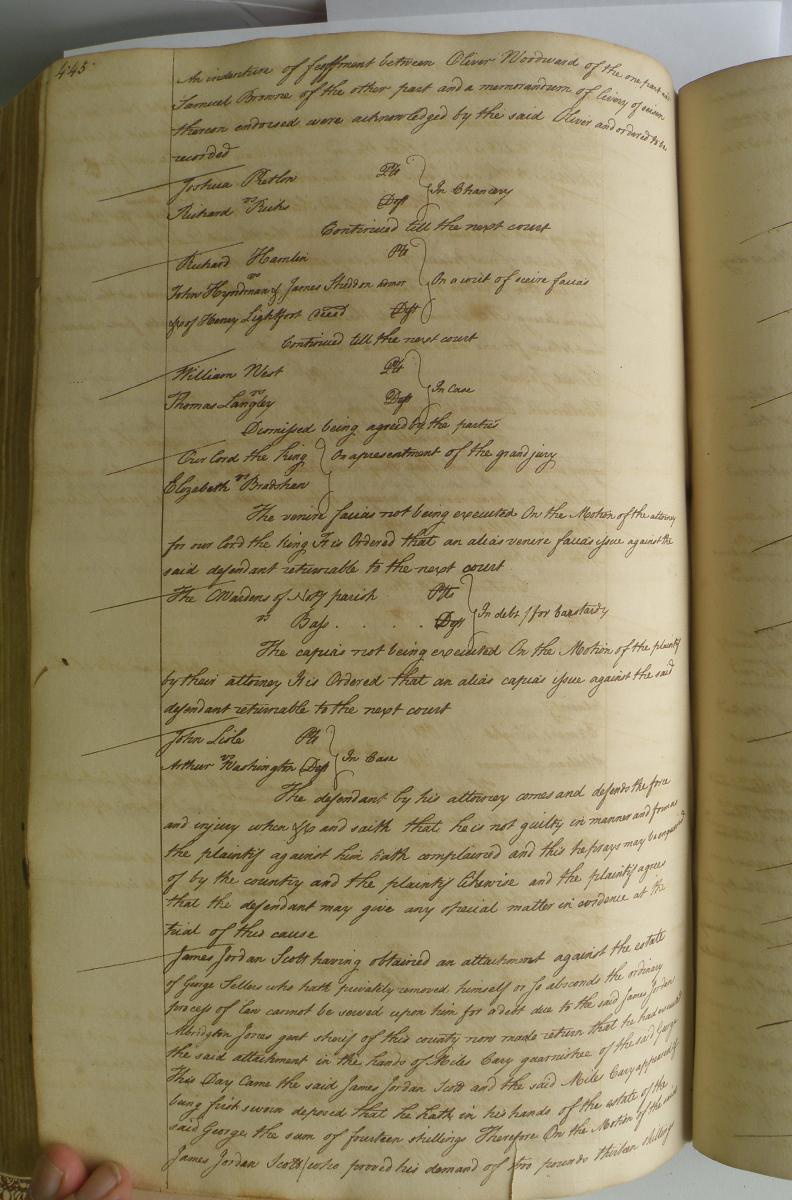 445
An indenture of feoffment between Oliver Woodward of the one part and
Samuel Browne of the other part and a memorandum of livery of seison
thereon endorsed were acknowledged by the said Oliver and ordered to be
recorded
Joshua Pretlow Plt
vs In Chancery
Richard Ricks Deft
Continued till the next court
Richard Hamlin Plt
vs
John Hyndman & James Sheddon admor On a writ of scire facias
&c of Henry Lightfoot deced Deft
Continued till the next court
William West Plt
vs In Case
Thomas Langley Deft
Dismissed being agreed by the parties
Our Lord the King On a presentment of the grand jury
vs
Elizabeth Bradshaw
The venire facias not being executed On the Motion of the attorney
for our Lord the King It is Ordered that an alias venire facias issue against the
said defendant returnable to the next court
The Wardens of Nott parish Plts
vs In debt / for bastardy
Bass . . . . Deft
The capias not being executed On the Motion of the plaintifs
by their attorney It is Ordered that an alias capias issue against the said
defendant returnable to the next court
John Lisle Plt
vs In Case
Arthur Washington Deft
The defendant by his attorney comes and defends the force
and injury when &c and saith that he is not guilty in manner and form as
the plaintif against him hath complained and this he prays may be enquired
of by the country and the plaintif likewise and the plaintif agrees
that the defendant may give any special matter in evidence at the
trial of this cause
James Jordan Scott having obtained an attachment against the estate
of George Sellers who hath privately removed himself or so absconds the ordinary
process of law cannot be served upon him for a debt due to the said James Jordan
Abridgton Jones gent sherif of this county now made return that he had executed
the said attachment in the hands of Miles Cary guarnishee of the said George
This Day came the said James Jordan Scott and the said Miles Cary appeared &
being first sworn deposed that he hath in his hands of the estate of the
said George the sum of fourteen shillings Therefore On the Motion of the said
James Jordan Scott (who proved his demand of two pounds thirteen shillings